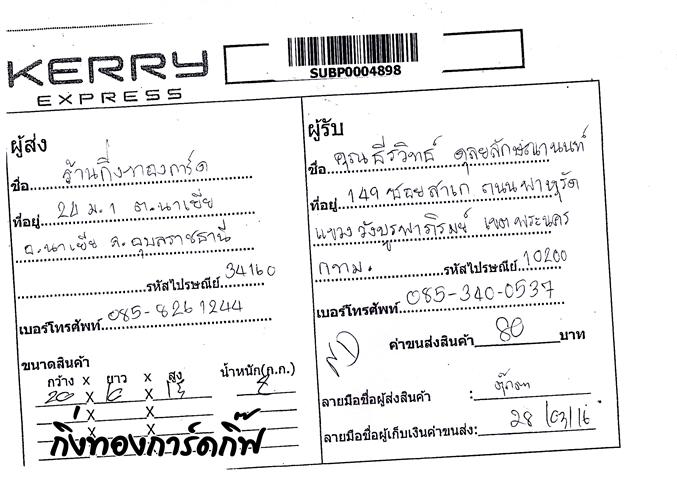 KERRY
EXPRESS
SUBP0004898
ผู้ส่ง
ชื่อ ร้านกิ่งทองการ์ด
ที่อยู่ 24 ม.1 ต.นาเยีย
อ.นาเยีย จ.อุบลราชธานี
รหัสไปรษณีย์ 34160
เบอร์โทรศัพท์ 085-826 1244
ขนาดสินค้า
กว้าง x ยาว x สูง น้ำหนัก(ก.ก.)
20 X X 15
X X
X X
กิ่งทองการ์ดกิ๊ฟ
ผู้รับ
ชื่อ คุณธีรวิทธ์ ดุลยลักษณานนท์
ที่อยู่ 149 ซอยสาเก ถนนพาหุรัด
แขวงวังบูรพาภิรมย์ เขตพระนคร
กทม. รหัสไปรษณีย์ 10200
เบอร์โทรศัพท์ 085-340-0537
ค่าขนส่งสินค้า 80 บาท
ลายมือชื่อผู้ส่งสินค้า :
ลายมือชื่อผู้เก็บเงินค่าขนส่ง: 28/03/16